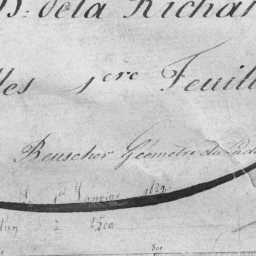 D. de la Richar
lles 1ere Feuill
Reuscher Géomètre du Cada
1er Janvier 1829
à 1500